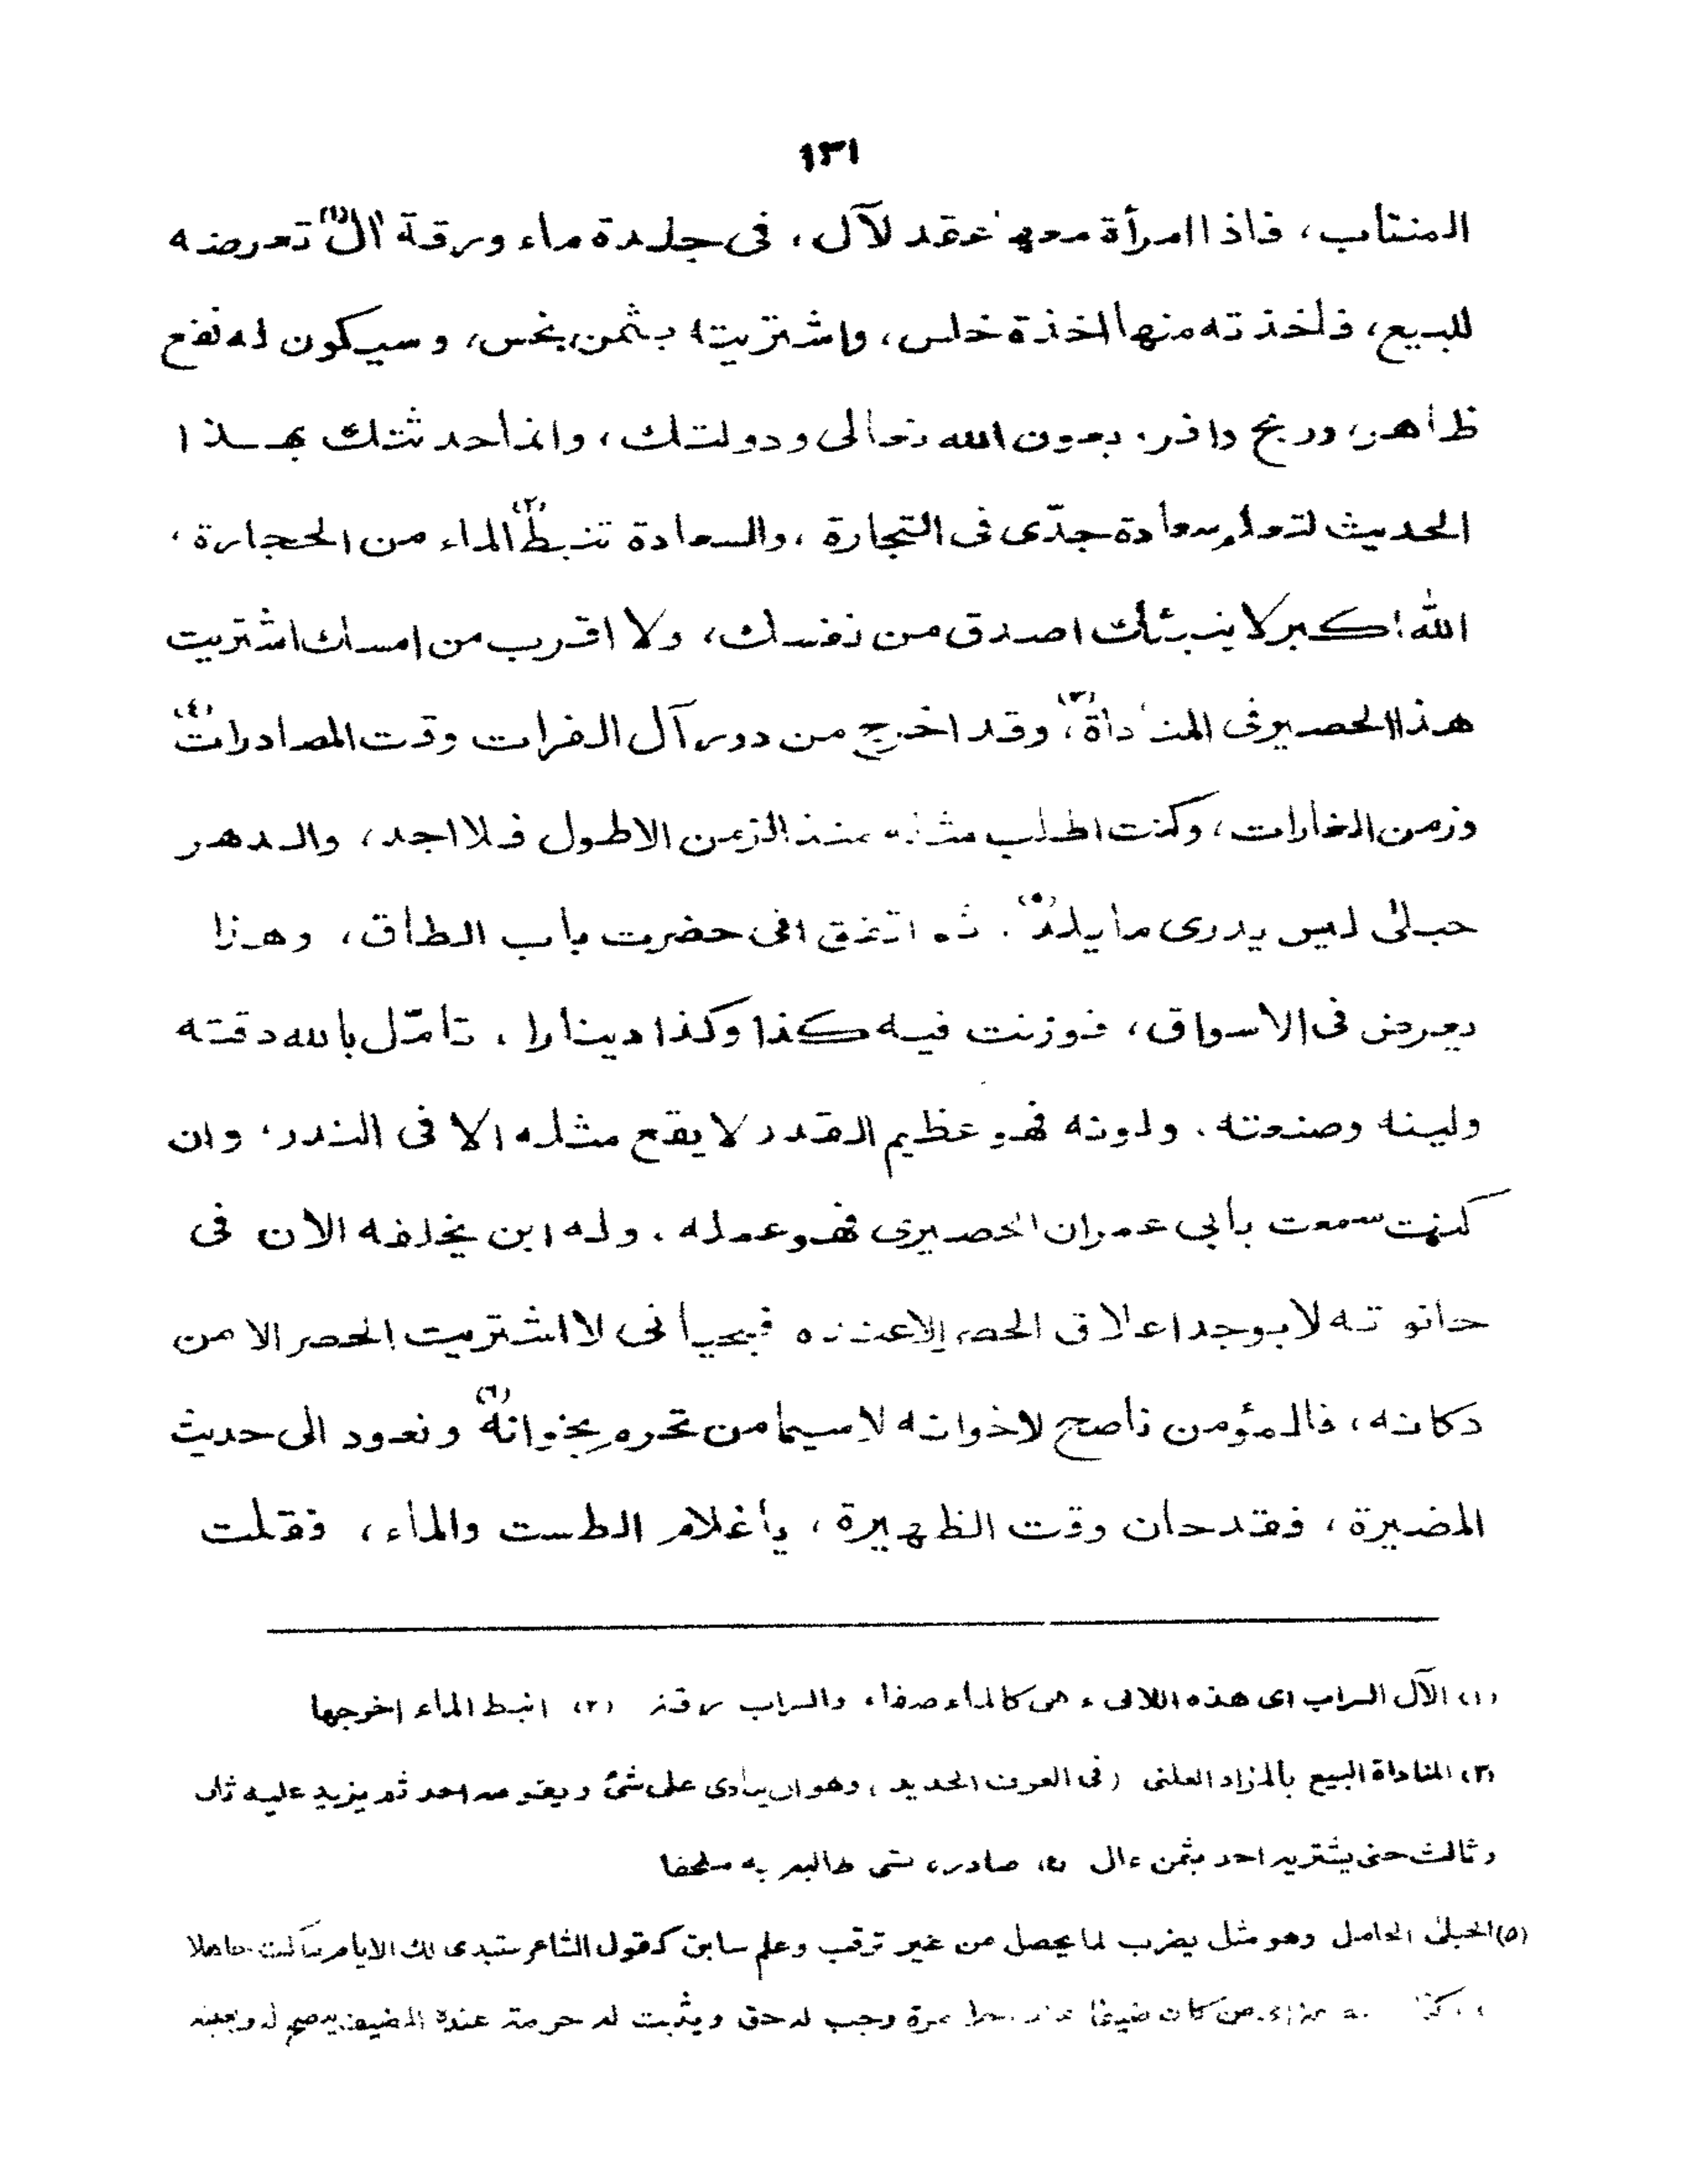 ١٣١
المنتاب، فاذا امرأة معها عقد لآل، فى جلدة ماء ورقة آل(١) تعرضه
للبيع، فاخذته منها اخذة خلس، واشتريته بثمن بخس، وسيكون له نفع
ظاهر، وربح وافر، بعون الله تعالى ودولتك، وانما حدثتك بهذا
الحديث لتعلم سعادة جدّى فى التجارة، والسعادة تنبط(٢) الماء من الحجارة،
الله اكبر لا ينبئك اصدق من نفسك، ولا اقرب من امسك اشتريت
هذا الحصير فى المناداة(٣)، وقد اخرج من دور آل الفرات وقت المصادرات(٤)
وزمن الغارات، وكنت اطلب مثله منذ الزمن الاطول فلا اجد، والدهر
حبلىٰ ليس يدرى ما يلد(٥). ثم اتفق انى حضرت باب الطاق، وهذا
يعرض فى الاسواق، فوزنت فيه كذا وكذا دينارا، تأمّل بالله دقته
ولينه وصنعته، ولونه فهو عظيم القدر لا يقع مثله الا فى الندر، وان
كنت سمعت بابى عمران الحصيرى فهو عمله، وله ابن يخلفه الان فى
حانوته لا يوجد اعلاق الحصر الا عنده فبحياتى لا اشتريت الحصر الا من
دكانه، فالمؤمن ناصح لاخوانه لا سيما من تحرم بخوانه(٦) ونعود الى حديث
المضيرة، فقد حان وقت الظهيرة، يا غلام الطست والماء، فقلت
(١) الآل السراب اى هذه اللالى ء هى كالماء صفاء والسراب رقة (٢) انبط الماء اخرجها
(٣) المناداة البيع بالمزاد العلنى (فى العرف الحديد، وهو ان ينادى على شئ و احد ثم يزيد عليه ثان
وثالث حتى يشتريه احد بثمن عال (٤) صادره طالبه به ملحفا
(٥) الحبلىٰ الحامل وهو مثل يضرب لما يحصل من غير ترقب وعلم سابق كقول الشاعر ستبدى لك الايام ما كنت جاهلا
من كان ضيفا مرة وجب له حق ويثبت له حرمة عنده المضيف